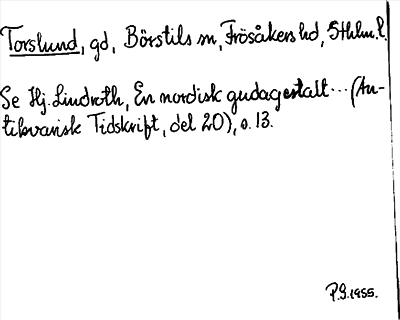 Torslund, gd, Börstils sn, Frösåkers hd, Sthlm. l.
Se Hj. Lindroth, En nordisk gudagestalt... (An-
tikvarisk Tidskrift, del 20), s. 13.
P.G. 1955.